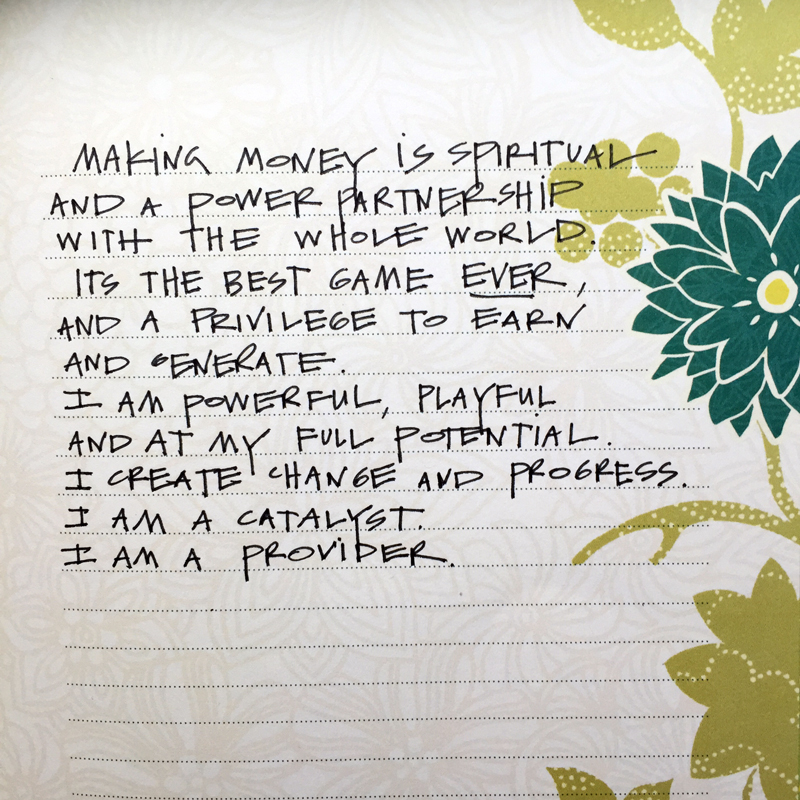 MAKING MONEY IS SPIRITUAL
AND A POWER PARTNERSHIP
WITH THE WHOLE WORLD.
ITS THE BEST GAME EVER,
AND A PRIVILEGE TO EARN
AND GENERATE.
I AM POWERFUL, PLAYFUL
AND AT MY FULL POTENTIAL.
I CREATE CHANGE AND PROGRESS.
I AM A CATALYST.
I AM A PROVIDER.